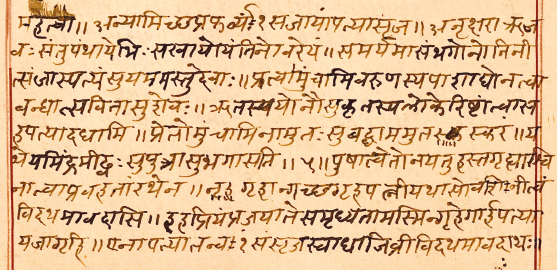 महत्वा॥ अन्यामिच्छप्रफर्व्यं१संजायांपत्यासृज॥ अनृक्षराऋज
वःसंतुपंथायेभिःसखायोयंतिनोवरेयं॥ समर्यमासंभगोनोनिनी
त्संजास्पत्यंसुयममस्तुदेवाः॥ प्रत्वामुंचामिवरुणस्यपाशाद्येनत्वा
बध्नात्सवितासुशेवः॥ ऋतस्ययोनौसुकृतस्यलोकेरिष्टांत्वास
हपत्यादधामि॥ प्रेतोमुंचामिनामुतःसुबद्धाममुतस्करं॥ य
थेयमिंद्रमीढ्वःसुपुत्रासुभगासति॥५॥ पूषात्वेतोनयतुहस्तगृह्याश्वि
नात्वाप्रवहतांरथेन॥ गृहान्गच्छगृहपत्नीयथासोवशिनीत्वं
विदथमावदासि॥ इहप्रियंप्रजयातेसमृध्यतामस्मिन्गृहेगार्हपत्या
यजागृहि॥ एनापत्यातन्वं१संसृजस्वाधाजिव्रीविदथमावदाथः॥